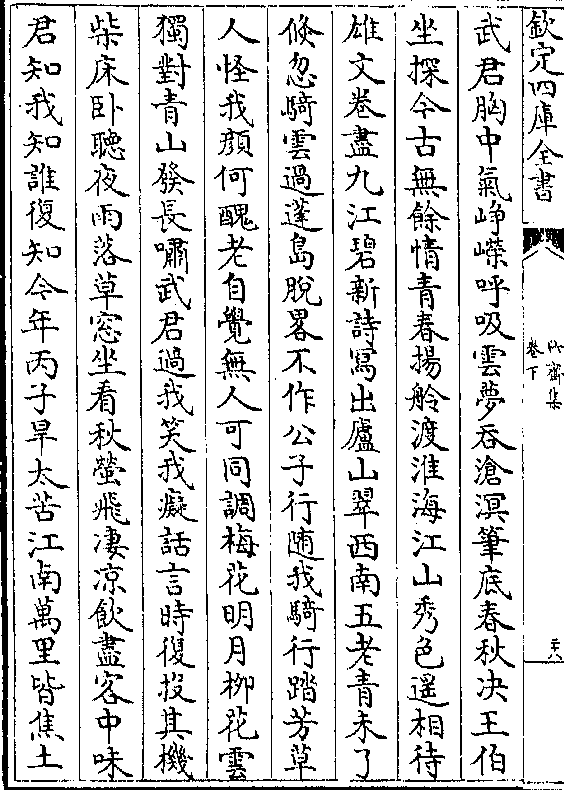 欽定四庫全書
竹齋集
卷下
二十八
武君胸中氣崢嶸呼吸雲夢吞滄溟筆底春秋决王伯
坐探今古無餘情青春揚舲渡淮海江山秀色遥相待
雄文卷盡九江碧新詩寫出廬山翠西南五老青未了
倐忽騎雲過蓬島脫畧不作公子行随我騎行踏芳草
人怪我顔何醜老自覺無人可同調梅花明月柳花雲
獨對青山發長嘯武君過我笑我癡話言時復投其機
柴床卧聽夜雨落草窓坐看秋螢飛凄凉飲盡客中味
君知我知誰復知今年丙子旱太苦江南萬里皆焦土